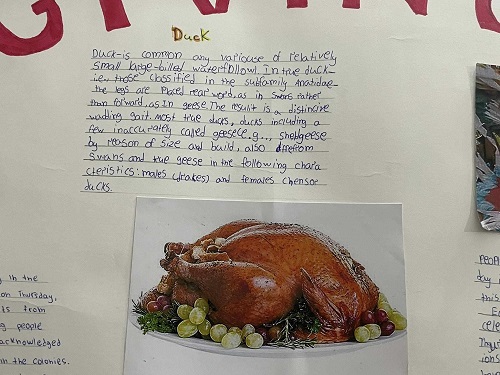 GIVING
Duck
Duck-is common any variouse of relatively
small large-billed waterfollowl. In true duck-
i.e, those classified in the subfamily Anatidae-
the legs are placed rear word, as in swans rather
than forword, as In geese. The result is a distinctive
wadling gait. most true ducks, ducks including a
few inaccurately called geese(e.g.., sheldgeese
by reason of size and build, also differ from
Swans and true geese in the following chara
cteristics: males (drakes) and females (hensor
ducks.
g in the
on Thursday,
ts from
g people
acknowledged
in the colonies.
Peopl
day i
this
Eq
cele
Inqui
ions